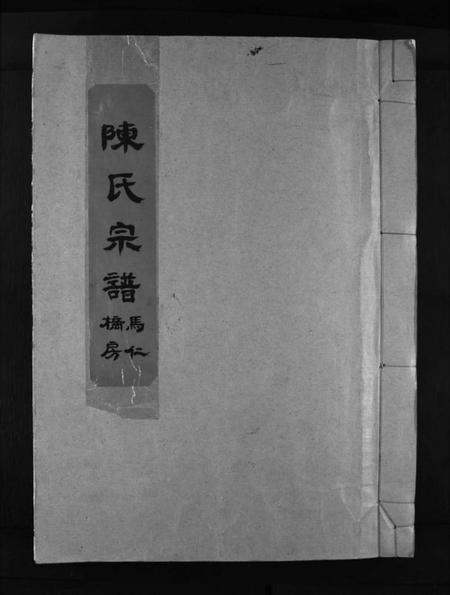 陳氏宗譜
馬仁
橋房